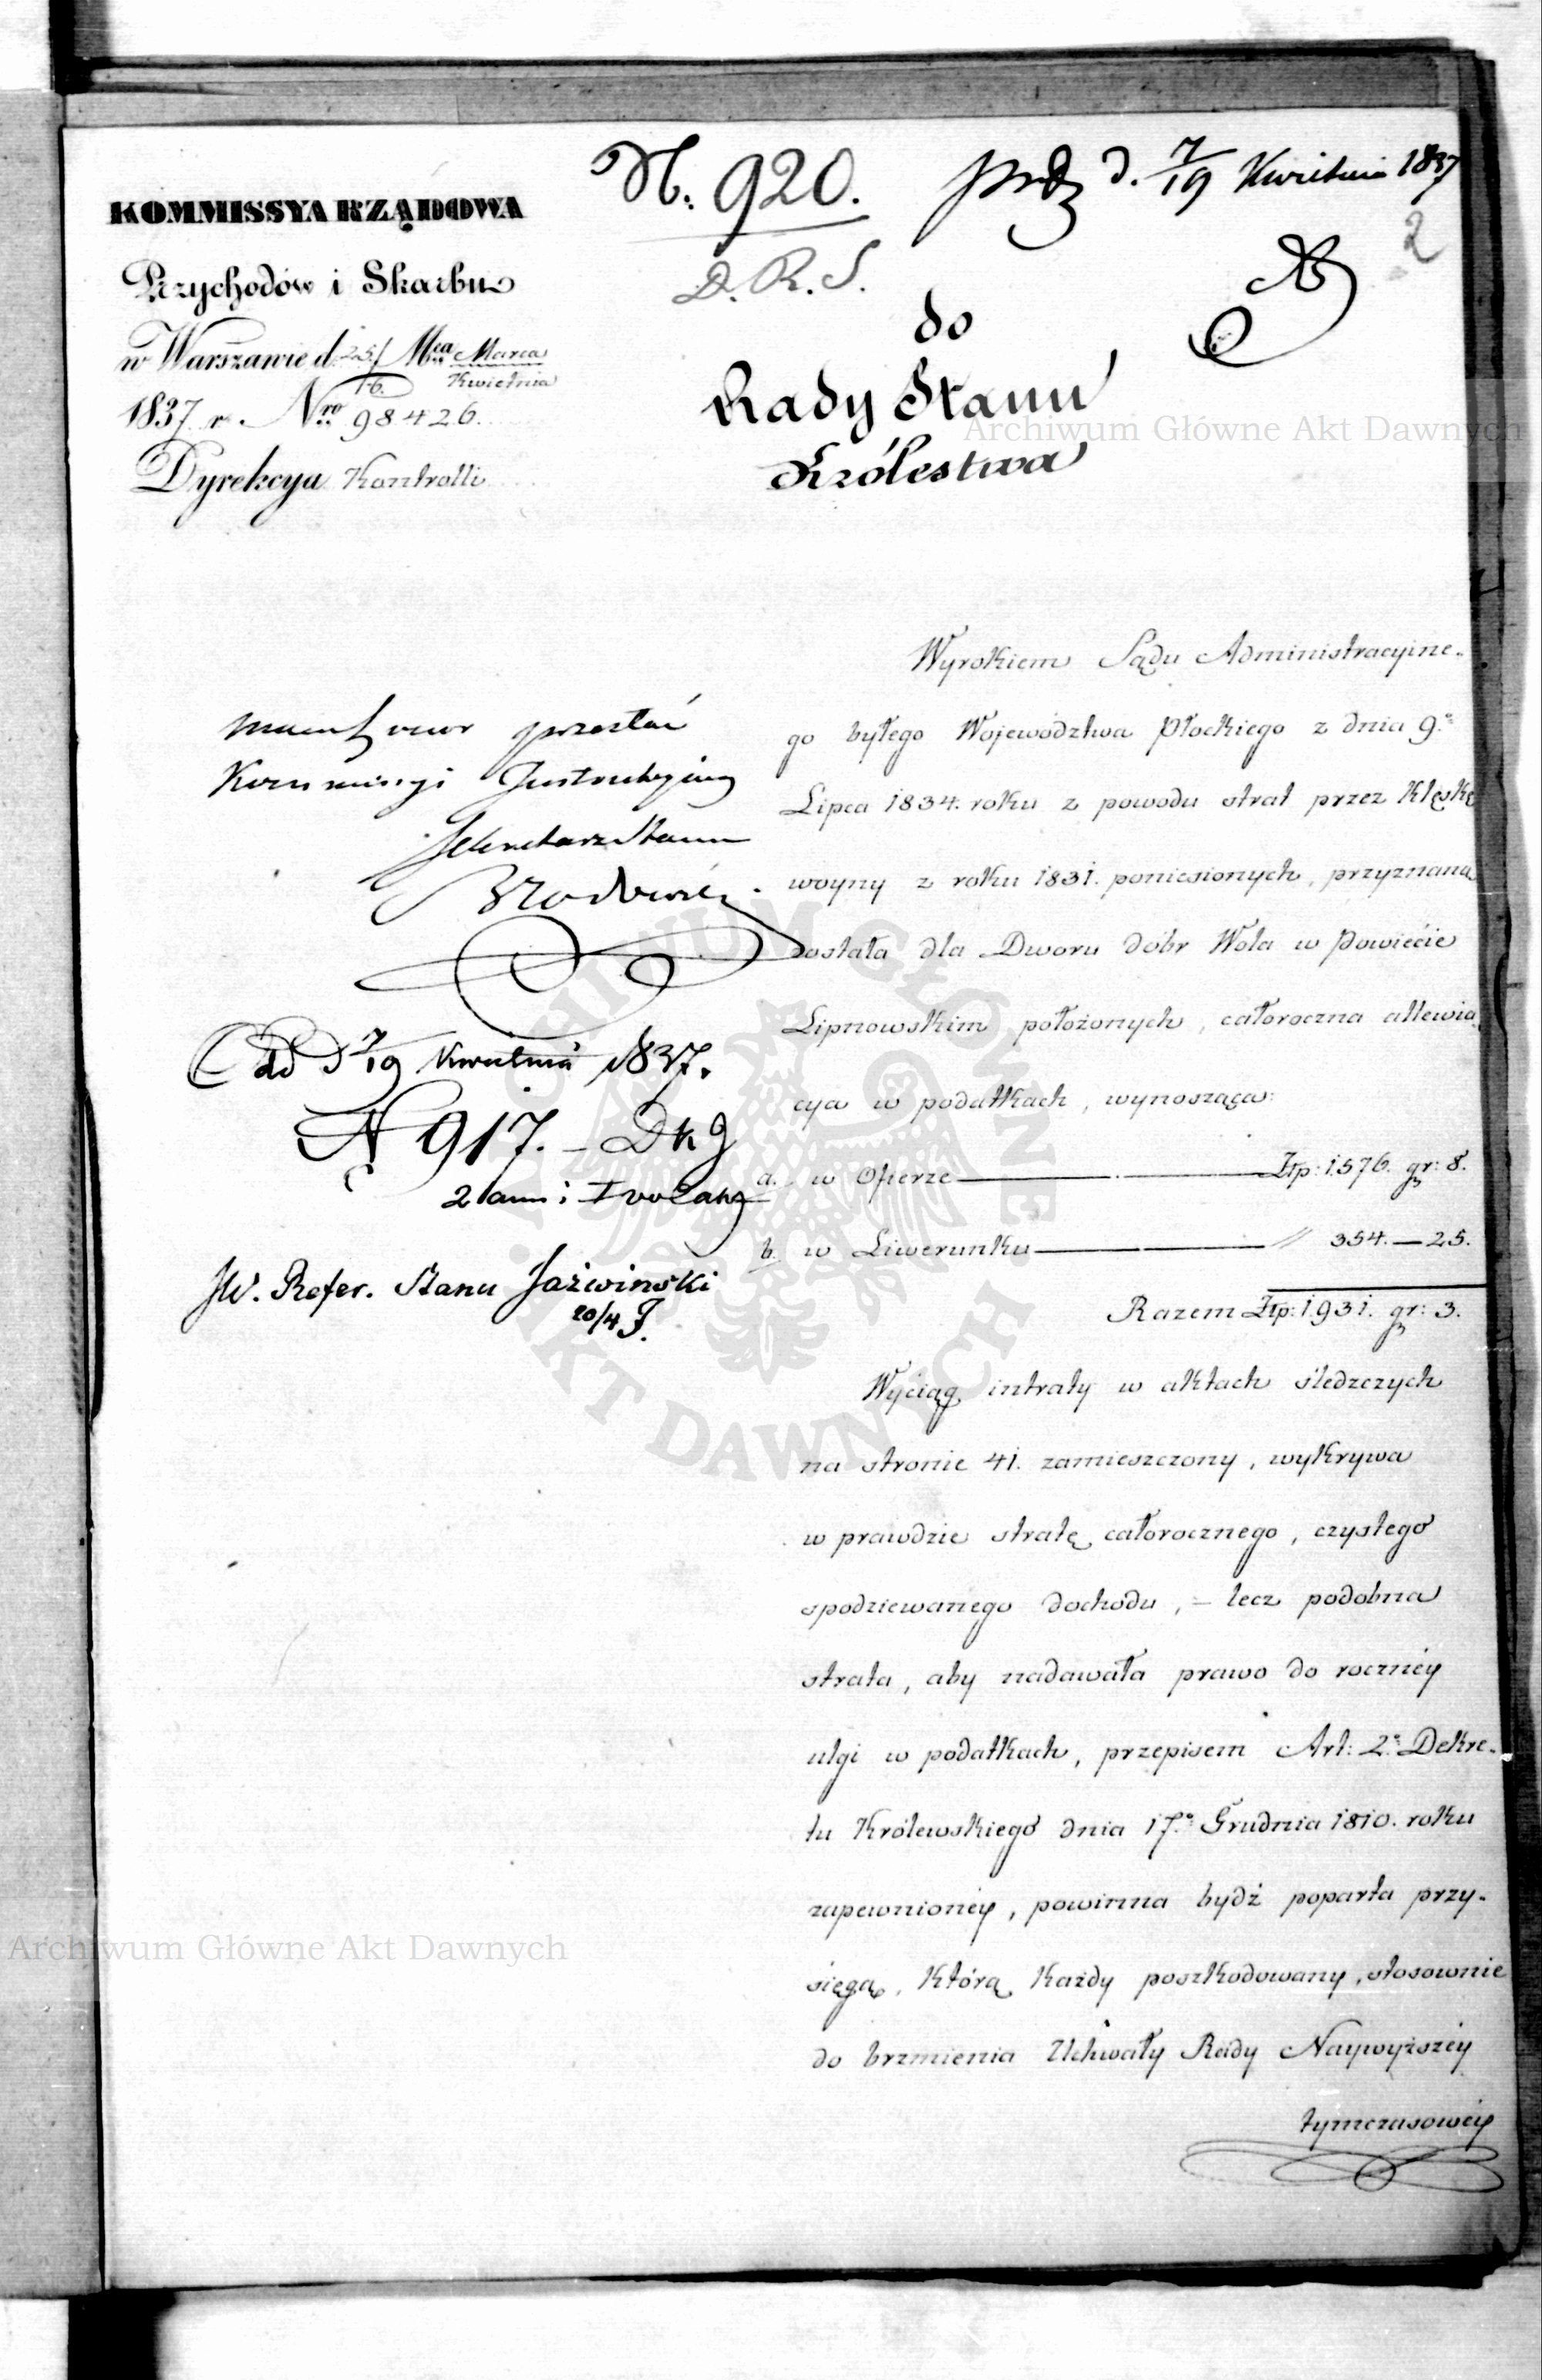 N. 920.
D. R. S.
d. 7/19 Kwietnia 1837
2
KOMMISSYA RZĄDOWA
Przychodów i Skarbu
w Warszawie d. 25/ Mca Marca
16. Kwietnia
1837 r. Nro 98426.
Dyrekcya Kontrolli
do
Rady Stanu
Królestwa
przesłać
Kommissyi Instrukcyjney
Sekretarz Stanu
d 7/19 Kwietnia 1837.
N 917.
JW. Refer. Stanu Jaźwinski
20/4 J.
Wyrokiem Sądu Administracyine-
go byłego Województwa Płockiego z dnia 9.o
Lipca 1834. roku z powodu strat przez klęskę
woyny z roku 1831. poniesionych, przyznana
została dla Dworu dóbr Wola w Powiecie
Lipnowskim położonych, całoroczna allewia
cya w podatkach, wynosząca:
a. w Ofierze Złp: 1576. gr: 8.
b. w Liwerunku " 354. — 25.
Razem Złp: 1931. gr: 3.
Wyciąg intraty w aktach śledzczych
na stronie 41. zamieszczony, wykrywa
w prawdzie stratę całorocznego, czystego
spodziewanego dochodu, – lecz podobna
strata, aby nadawała prawo do roczney
ulgi w podatkach, przepisem Art: 2.o Dekre-
tu Królewskiego dnia 17.o Grudnia 1810. roku
zapewnioney, powinna bydź poparta przy-
sięgą, którą każdy poszkodowany, stosownie
do brzmienia Uchwały Rady Naywyższey
tymczasowey
Archiwum Główne Akt Dawnych
Archiwum Główne Akt Dawnych
ARCHIWUM GŁÓWNE
AKT DAWNYCH